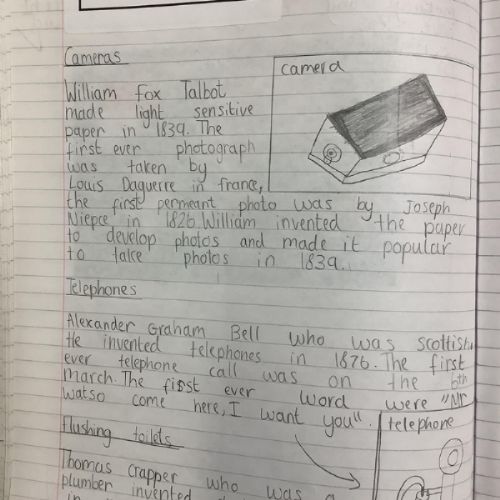 Cameras
camera
William Fox Talbot
made light sensitive
paper in 1839. The
first ever photograph
was taken by
Louis Daguerre in france,
the first permeant photo was by Joseph
Niepce in 1826. William invented the paper
to develop photos and made it popular
to take photos in 1839.
Telephones
Alexander Graham Bell who was scottish.
He invented telephones in 1876. The first
ever telephone call was on the 6th
march. The first ever word were "Mr
Watso come here, I want you".
telephone
flushing toilets
Thomas Crapper who was a
plumber invented